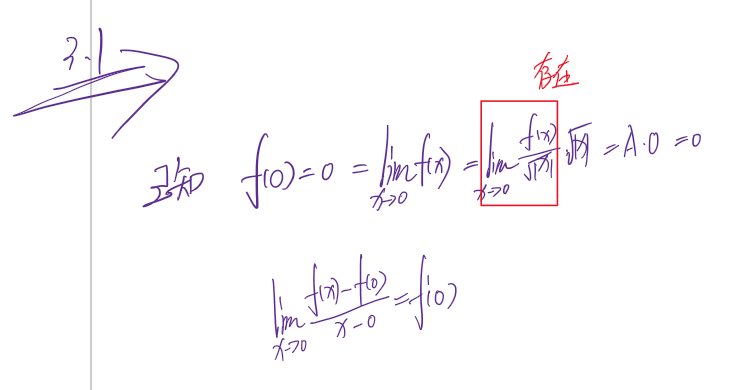 3.1
存在
主知 f(0)=0 = lim_{x→0} f(x) = lim_{x→0} f(x)/√|x| · √|x| = A·0 = 0
lim_{x→0} (f(x)-f(0))/(x-0) = f'(0)